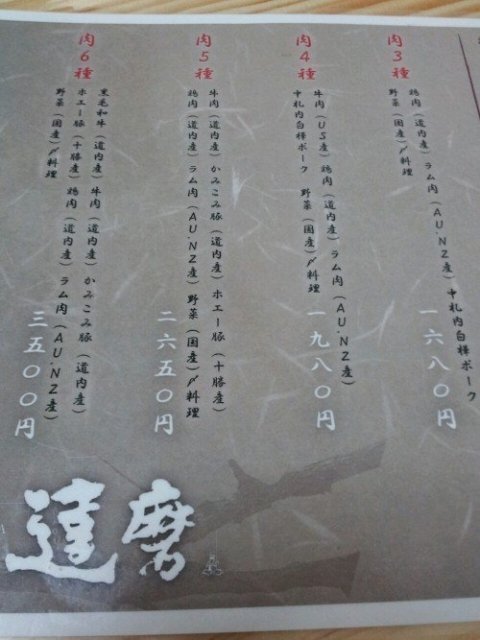 肉3種
鶏肉（道内産）ラム肉（AU.NZ産）中札内白樺ポーク
野菜（国産）〆料理
一六八〇円
肉4種
牛肉（US産）鶏肉（道内産）ラム肉（AU.NZ産）
中札内白樺ポーク 野菜（国産）〆料理
一九八〇円
肉5種
牛肉（道内産）かみこみ豚（道内産）ホエー豚（十勝産）
鶏肉（道内産）ラム肉（AU.NZ産）野菜（国産）〆料理
二六五〇円
肉6種
黒毛和牛（道内産）牛肉（道内産）かみこみ豚（道内産）
ホエー豚（十勝産）鶏肉（道内産）ラム肉（AU.NZ産）
野菜（国産）〆料理
三五〇〇円
達磨